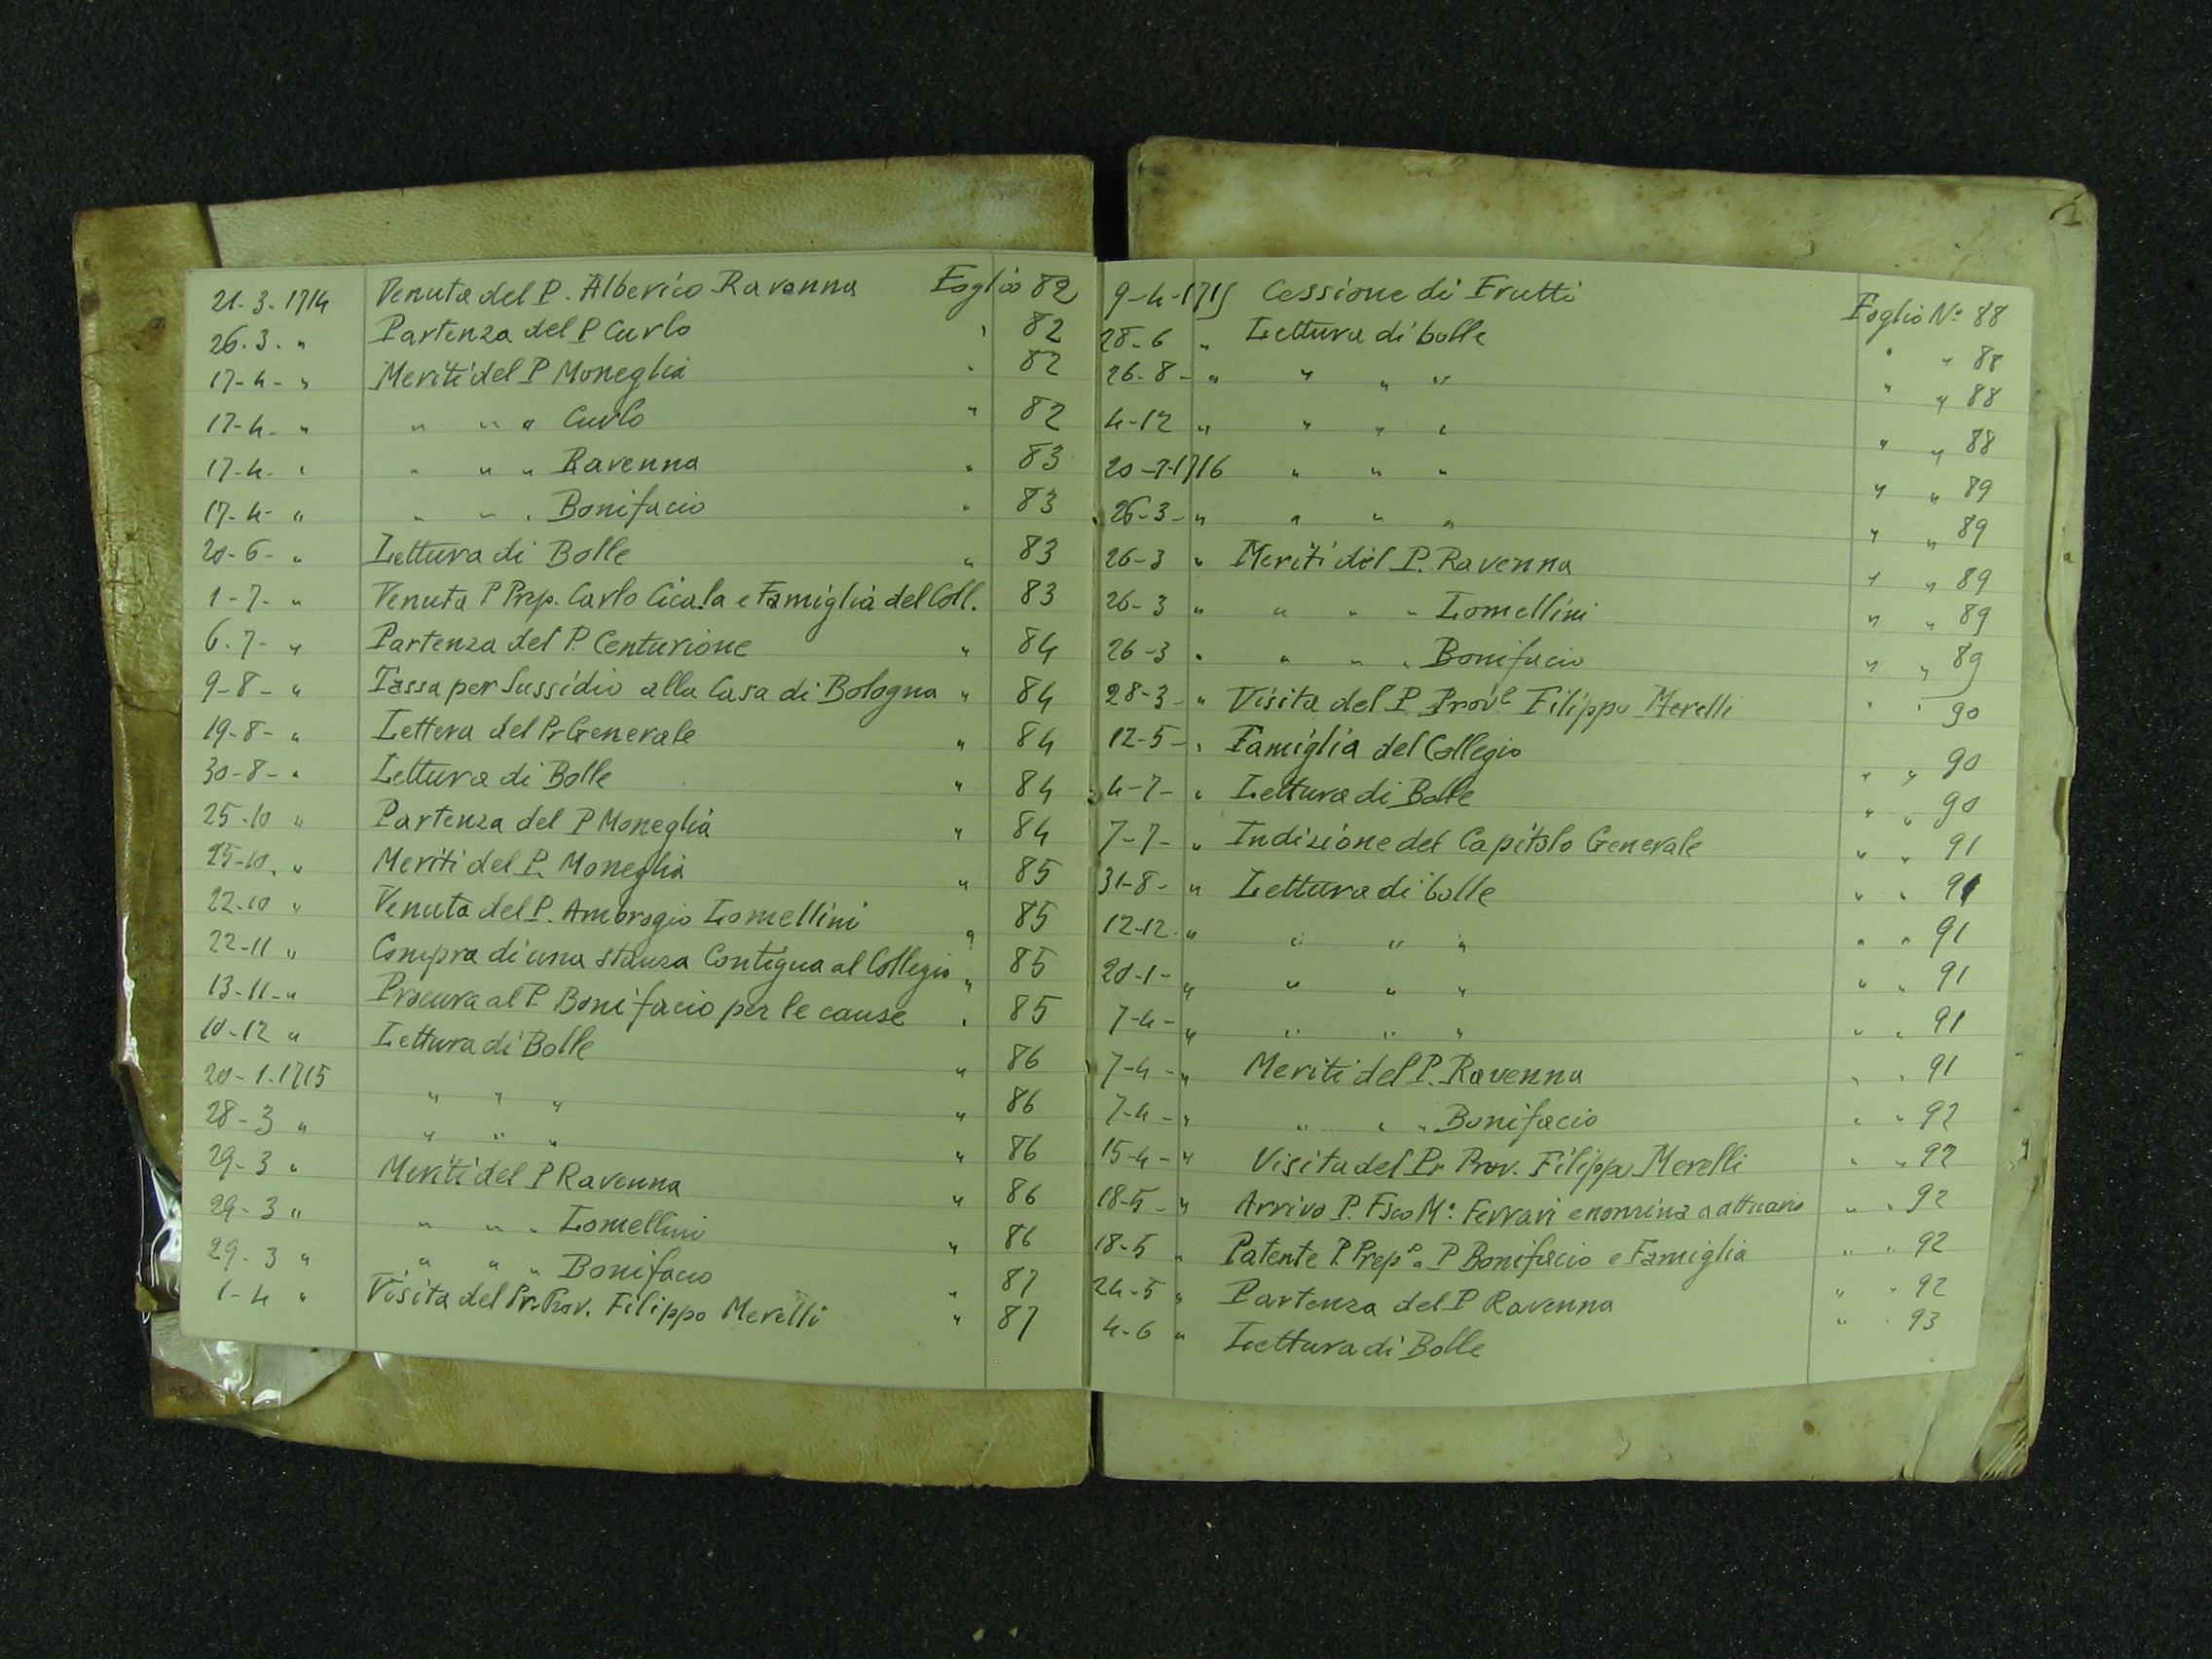 21-3-1714 Venuta del P. Alberico Ravenna Foglio 82
26-3- " Partenza del P Curlo " 82
17-4- " Meriti del P Moneglia " 82
17-4- " " " " Curlo " 82
17-4- " " " " Ravenna " 83
17-4- " " " " Bonifacio " 83
20-6- " Lettura di Bolle " 83
1-7- " Venuta P Prep. Carlo Cicala e Famiglia del Coll. 83
6-7- " Partenza del P. Centurione " 84
9-8- " Tassa per Sussidio alla Casa di Bologna " 84
19-8- " Lettera del Pr Generale " 84
30-8- " Lettura di Bolle " 84
25-10 " Partenza del P Moneglia " 84
25-10. " Meriti del P. Moneglia " 85
22-10 " Venuta del P. Ambrogio Lomellini " 85
22-11 " Compra di una stanza Contigua al Collegio " 85
13-11- " Procura al P. Bonifacio per le cause " 85
10-12 " Lettura di Bolle " 86
20-1-1715 " " " " 86
28-3 " " " " " 86
29-3 " Meriti del P Ravenna " 86
29-3 " " " " Lomellini " 86
29-3 " " " " Bonifacio " 87
1-4 " Visita del Pr. Prov. Filippo Merelli " 87
9-4-1715 Cessione di Frutti Foglio N° 88
28-6 " Lettura di bolle " " 88
26-8- " " " " " " 88
4-12 " " " " " " 88
20-1-1716 " " " " " 89
26-3- " " " " " " 89
26-3 " Meriti del P. Ravenna " " 89
26-3 " " " " Lomellini " " 89
26-3 " " " " Bonifacio " " 89
28-3- " Visita del P. Prov.l Filippo Merelli " " 90
12-5- " Famiglia del Collegio " " 90
4-7- " Lettura di Bolle " " 90
7-7- " Indizione del Capitolo Generale " " 91
31-8- " Lettura di bolle " " 91
12-12- " " " " " " 91
20-1- " " " " " " 91
7-4- " " " " " " 91
7-4- " Meriti del P. Ravenna " " 91
7-4- " " " " Bonifacio " " 92
15-4- " Visita del Pr Prov. Filippo Merelli " " 92
18-5- " Arrivo P. Fsco M.a Ferrari e nomina a attuario " " 92
18-5 " Patente P. Prep.o a P Bonifacio e Famiglia " " 92
24-5 " Partenza del P Ravenna " " 92
4-6 " Lettura di Bolle " " 93
1